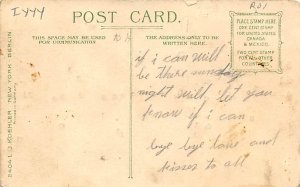 I444
POST CARD.
THIS SPACE MAY BE USED
FOR COMMUNICATION
THE ADDRESS ONLY TO BE
WRITTEN HERE.
PLACE STAMP HERE
ONE CENT STAMP
FOR UNITED STATES,
CANADA
& MEXICO.
TWO CENT STAMP
FOR ALL OTHER
COUNTRIES.
KOEHLER NEW YORK BERLIN
if i can will
be there sunday
night will let you
know if i can.
bye bye love and
kisses to all